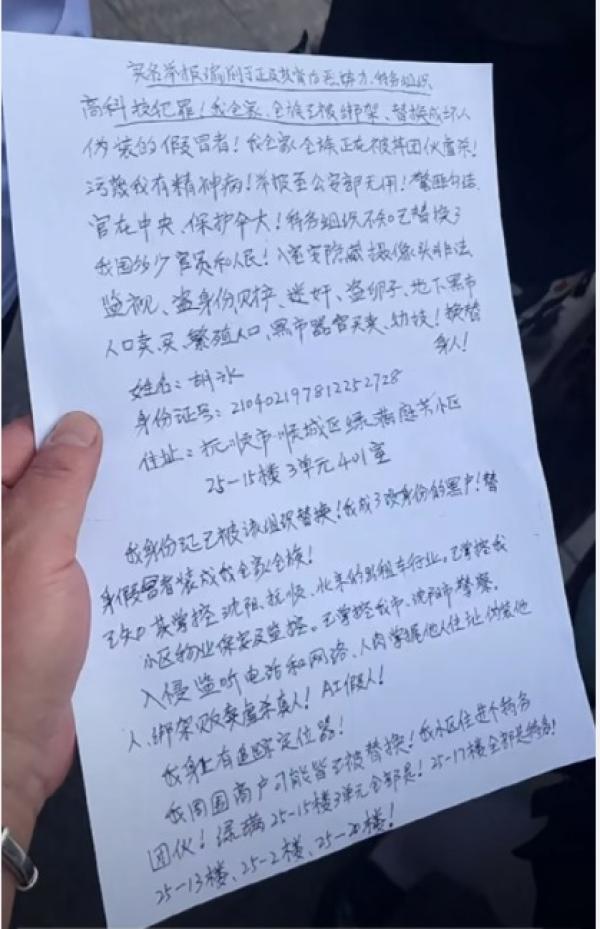 实名举报
高科技犯罪！我全家、全族已被绑架、替换成坏人
伪装的假冒者！我全家全族正在被其团伙虐杀！
污蔑我有精神病！举报至公安部无用！警匪勾结
官在中央、保护伞大！特务组织不知已替换了
我国多少官员和人民！入室安隐藏摄像头非法
监视、盗身份、护、迷奸、盗卵子、地下黑市
人口卖、买、繁殖人口、黑市器官买卖、幼妓！换替
身人！
姓名：胡冰
身份证号：210402197812252728
住址：抚顺市顺城区绿满庭芳小区
25-15楼3单元401室
我身份证已被该组织替换！我成了改身份的黑户！替
身假冒者装成我全家全族！
已知其掌控沈阳、抚顺、北京的出租车行业。已掌控我
小区物业保安及监控。已掌控我市、沈阳市警察。
入侵监听电话和网络、人肉掌握他人住址、伪装他
人、绑架贩卖虐杀真人！AI假人！
我身上有追踪定位器！
我周围商户可能皆已被替换！我小区住进个特务
团伙！绿满25-15楼3单元全部是！25-17楼全部是特务！
25-13楼、25-2楼、25-20楼！